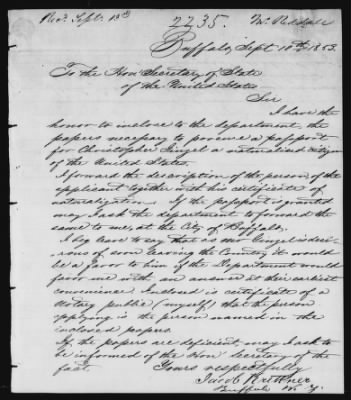 Rec. Sept. 13th 2235. Mr. Reddall
Buffalo, Sept 10th, 1853.
To the Hon Secretary of State
of the United States
Sir
I have the
honor to inclose to the department, the
papers necessary to procure a passport
for Christopher a naturalized citizen
of the United States.
I forward the description of the person of the
applicant together with his certificate of
naturalization. If the passport is granted
may I ask the department to forward the
same to me, at the City of Buffalo.
I beg leave to say that as Mr. is desir-
ous of soon leaving the Country it would
be a favor to him if the Department would
favor me with an answer at their earliest
convenience. Inclosed is certificate of a
Notary public (myself) that the person
applying is the person named in the
inclosed papers.
If the papers are deficient may I ask to
be informed of the Hon Secretary of the
fact. Yours respectfully
Jacob
Buffalo N. Y.